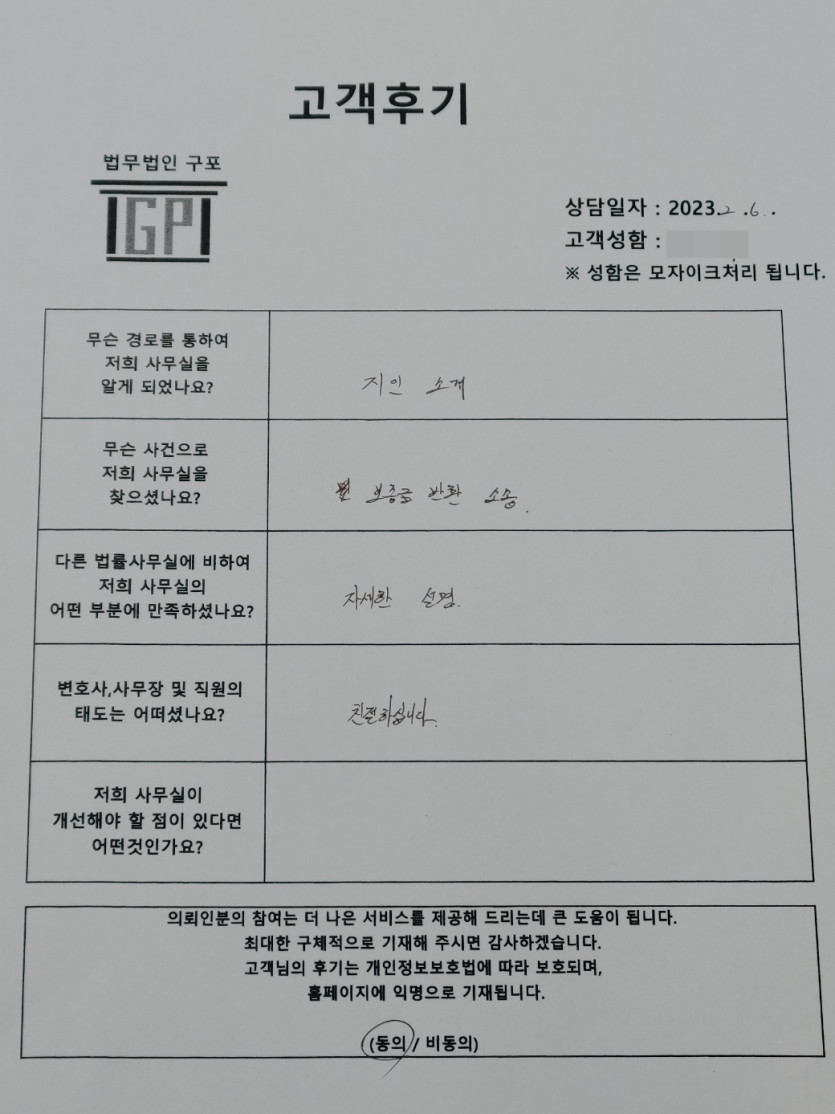 고객후기
법무법인 구포
IGPI
상담일자 : 2023.2 .6. .
고객성함 :
※ 성함은 모자이크처리 됩니다.
무슨 경로를 통하여
저희 사무실을
알게 되었나요?
지인 소개
무슨 사건으로
저희 사무실을
찾으셨나요?
보증금 반환 소송.
다른 법률사무실에 비하여
저희 사무실의
어떤 부분에 만족하셨나요?
자세한 설명.
변호사,사무장 및 직원의
태도는 어떠셨나요?
친절하십니다.
저희 사무실이
개선해야 할 점이 있다면
어떤것인가요?
의뢰인분의 참여는 더 나은 서비스를 제공해 드리는데 큰 도움이 됩니다.
최대한 구체적으로 기재해 주시면 감사하겠습니다.
고객님의 후기는 개인정보보호법에 따라 보호되며,
홈페이지에 익명으로 기재됩니다.
(동의 / 비동의)